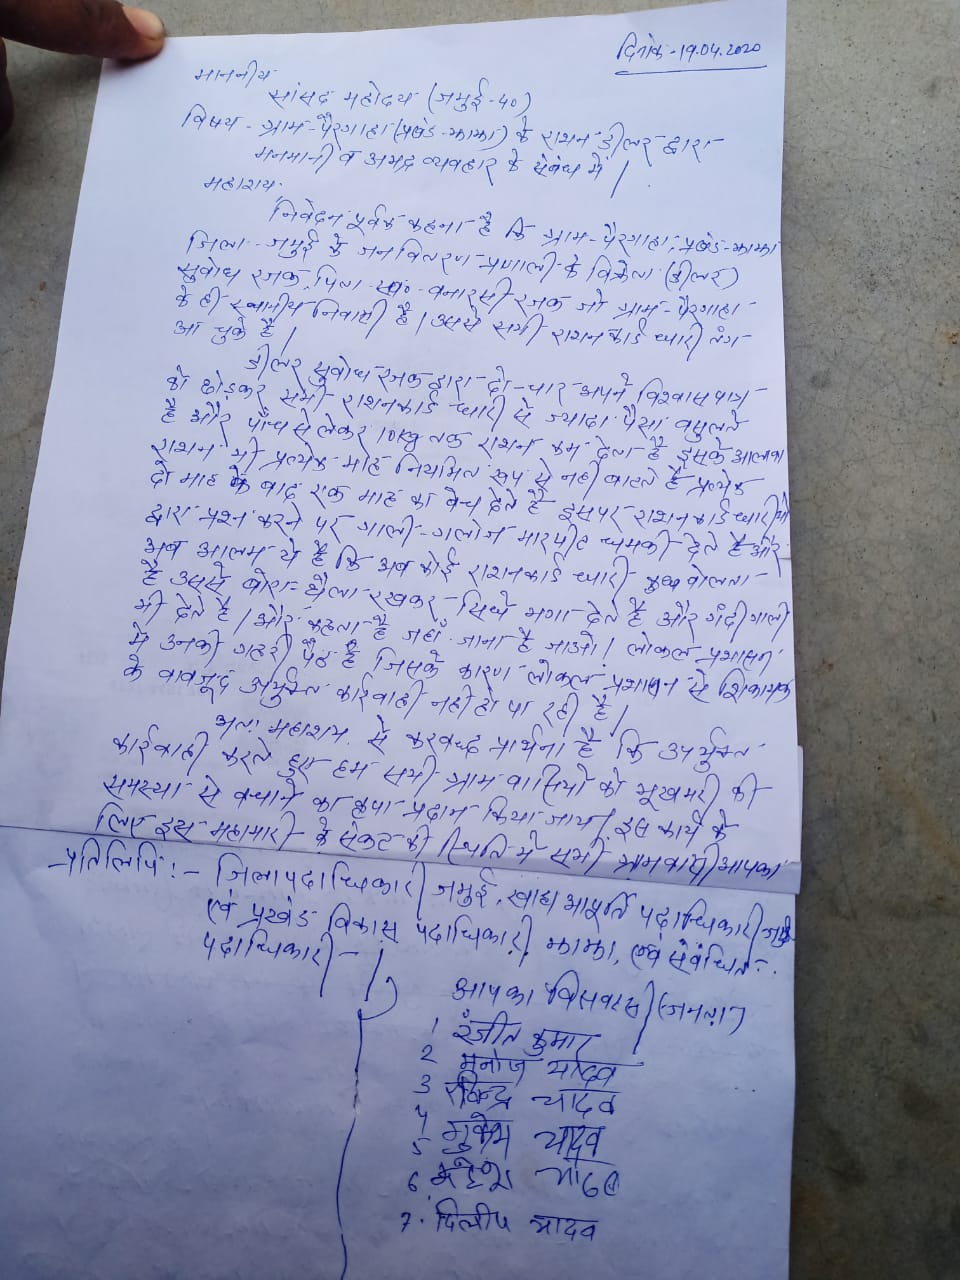 दिनांक - 19.04.2020
माननीय
सांसद महोदय (जमुई - 40)
विषय - ग्राम - पैरगाहा (प्रखंड - झाझा) के राशन डीलर द्वारा
मनमानी व अभद्र व्यवहार के संबंध में।
महाशय,
निवेदन पूर्वक कहना है कि ग्राम - पैरगाहा, प्रखंड - झाझा
जिला - जमुई के जन वितरण प्रणाली के विक्रेता (डीलर)
सुबोध रजक, पिता स्व॰ बनारसी रजक जो ग्राम - पैरगाहा
के ही स्थानीय निवासी है। उससे सभी राशन कार्ड धारी तंग
आ चुके है।
डीलर सुबोध रजक द्वारा दो-चार अपने विश्वास पात्र
को छोड़कर सभी राशनकार्ड धारी से ज्यादा पैसा वसुलते
है और पाँच से लेकर 10kg तक राशन कम देता है इसके अलावा
राशन भी प्रत्येक माह नियमित रूप से नही बाटते है प्रत्येक
दो माह के बाद एक माह का बेच देते है इसपर राशन कार्ड धारीयो
द्वारा प्रश्न करने पर गाली-गलोज मारपीट धमकी देते है और
अब आलम ये है कि अब कोई राशनकार्ड धारी कुछ बोलता
है उससे बोरा-थैला रखकर सिधे भगा देते है और गंदी गाली
भी देते है। और कहता है जहाँ जाना है जाओ। लोकल प्रशासन
मे उनकी गहरी पैठ है जिसके कारण लोकल प्रशासन से शिकायत
के वावजूद उपर्युक्त कारवाही नही हो पा रही है।
अतः महाशय से करबद्ध प्रार्थना है कि उपर्युक्त
कार्रवाही करते हुए हम सभी ग्राम वासियों को भूखमरी की
समस्या से बचाने का कृपा प्रदान किया जाय। इस कार्य के
लिए इस महामारी के संकट की स्थिति मे सभी ग्रामवासी आपका
प्रतिलिपि :- जिला पदाधिकारी जमुई, खाद्य आपूर्ति पदाधिकारी जमुई
एवं प्रखंड विकास पदाधिकारी झाझा, एवं संबंधित
पदाधिकारी -
आपका विसवास (जनता)
1 रंजीत कुमार
2 मनोज यादव
3 रविन्द्र यादव
4
5 मुकेश यादव
6. महेश यादव
7. दिलीप यादव